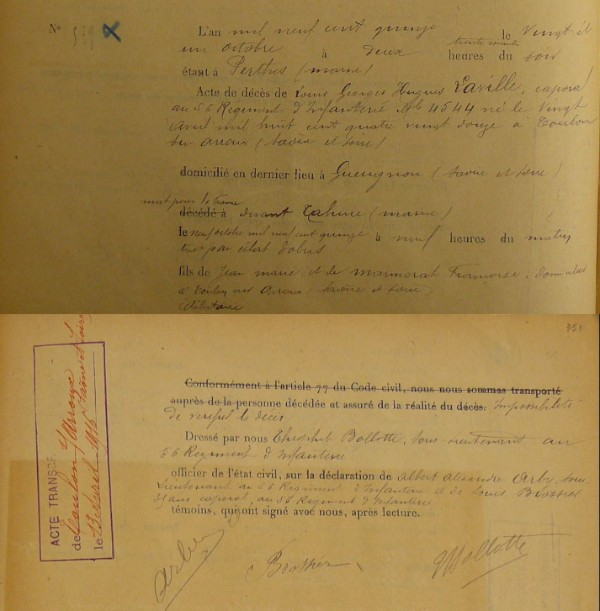 L'an mil neuf cent quinze le vingt et
N°
un octobre à deux heures trente minutes du soir
étant à Perthes (marne)
Acte de décès de Louis Georges Hugues Laville, caporal
au 56 Regiment d'Infanterie N° 4544 né le vingt
avril mil huit cent quatre vingt douze à Toulon
sur Arroux (Saône et Loire)
domicilié en dernier lieu à Gueugnon (Saône et Loire)
mort pour la France
décédé à devant Tahure (marne)
le neuf octobre mil neuf cent quinze à neuf heures du matin
tué par éclat d'obus
fils de Jean marie et de Françoise, domiciliés
à Toulon sur Arroux (Saône et Loire)
Célibataire
Conformément à l'article 77 du Code civil, nous nous sommes transporté
auprès de la personne décédée et assuré de la réalité du décès. Impossibilité
de verifier le décès
Dressé par nous Bollotte, sous-lieutenant au
56 Regiment d'Infanterie
officier de l'état civil, sur la déclaration de Albert Alexandre Arby, sous
lieutenant au 56 Regiment d'Infanterie et de Louis
31 ans caporal, au 56 Regiment d'Infanterie
témoins, qui ont signé avec nous, après lecture.
ACTE TRANSCR
de Toulon s/Arroux
le
Arby
Bollotte